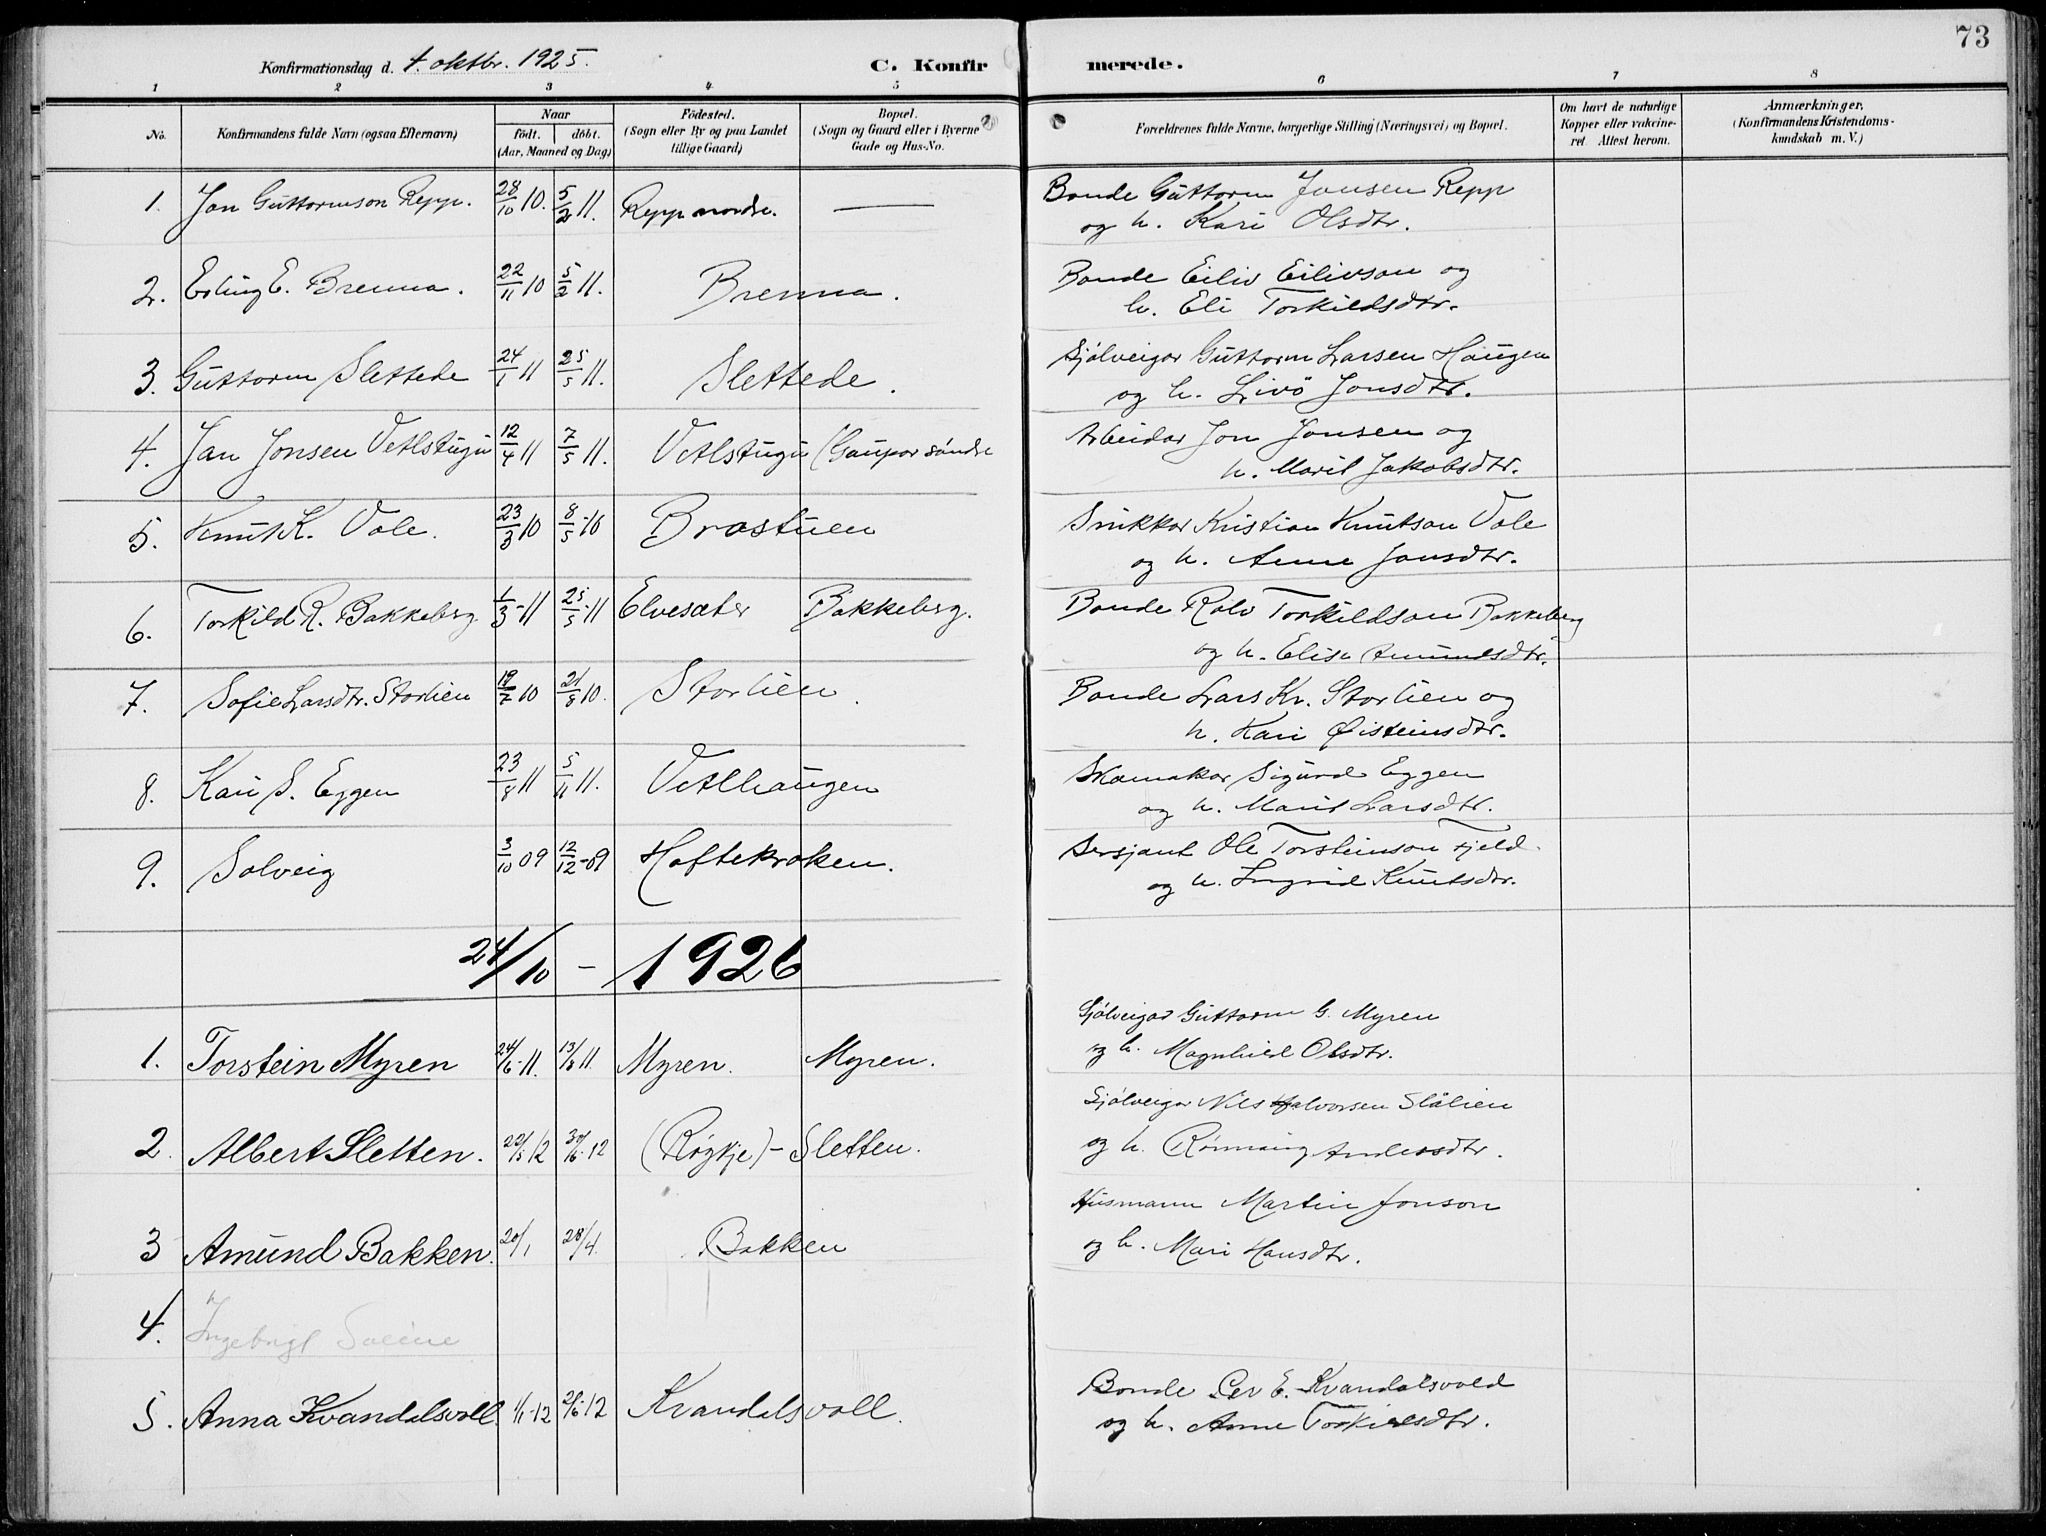 73
Konfirmationsdag d. 4. oktbr. 1925.
C. Konfir
merede.
1 2 3 4 5 6 7 8
No.
Konfirmandens fulde Navn (ogsaa Efternavn)
Naar
født. døbt.
(Aar, Maaned og Dag)
Fødested.
(Sogn eller By og paa Landet
tillige Gaard)
Bopæl.
(Sogn og Gaard eller i Byerne
Gade og Hus-No.
Forældrenes fulde Navne, borgerlige Stilling (Næringsvei) og Bopæl.
Om havt de naturlige
Kopper eller vakcine-
ret. Attest herom.
Anmærkninger,
(Konfirmandens Kristendoms-
kundskab m. V.)
1. Jon Guttormson Repp. 28/10 10. 5/2 11. Repp nordre. — Bonde Guttorm Jonsen Repp
og h. Kari Olsdtr.
2. Erling E. Brenna. 22/11 10 5/2 11. Brenna. Bonde Eiliv Eilivson og
h. Eli Torkildsdtr.
3. Guttorm Slettede 24/1 11 25/5 11. Slettede. Sjølveigar Guttorm Larsen Haugen
og h. Livö Jonsdtr.
4. Jan Jonsen Vetlstugu 12/4 11 7/5 11. Vetlstugu (Gaupar søndre Arbeidar Jon Jonsen og
h. Marit Jakobsdtr.
5. Knut K. Vole. 23/3 10 8/5 - 10 Brostuen Snikkar Kristian Knutson Vole
og h. Anne Jonsdtr.
6. Torkild R. Bakkeberg 1/3 - 11 25/5 - 11 Elvesæter Bakkeberg. Bonde Rolv Torkildson Bakkeberg
og h. Elise Amundsdtr.
7. Sofie Larsdtr. Storlien 19/7 10 21/8 10. Storlien. Bonde Lars Kr. Storlien og
h. Kari Øisteinsdtr.
8. Kari S. Eggen 23/8 11 5/11 11. Vetlhaugen Skomakar Sigurd Eggen
og h. Marit Larsdtr.
9. Solveig 3/10 09 12/12 - 09 Hoftekroken. Sersjant Ole Torsteinson Fjeld.
og h. Ingrid Knutsdtr.
24/10 - 1926
1. Torstein Myren 24/6 - 11. 13/8 11 Myren. Myren. Sjølveigar Guttorm G. Myren
og h. Magnhild Olsdtr.
2. Albert Sletten. 22/5 12 30/6 - 12 (Røykje) - Sletten. Sjølveigar Nils Halvorsen Slålien
og h. Rønnaug Andersdtr.
3 Amund Bakken. 20/1 28/4. Bakken Husmann Martin Jonson
og h. Mari Hansdtr.
4. Ingebrigt
5. Anna Kvandalsvoll. 1/1 - 12 26/6 - 12 Kvandalsvoll. Bonde Per E. Kvandalsvold
og h. Anne Torkildsdtr.